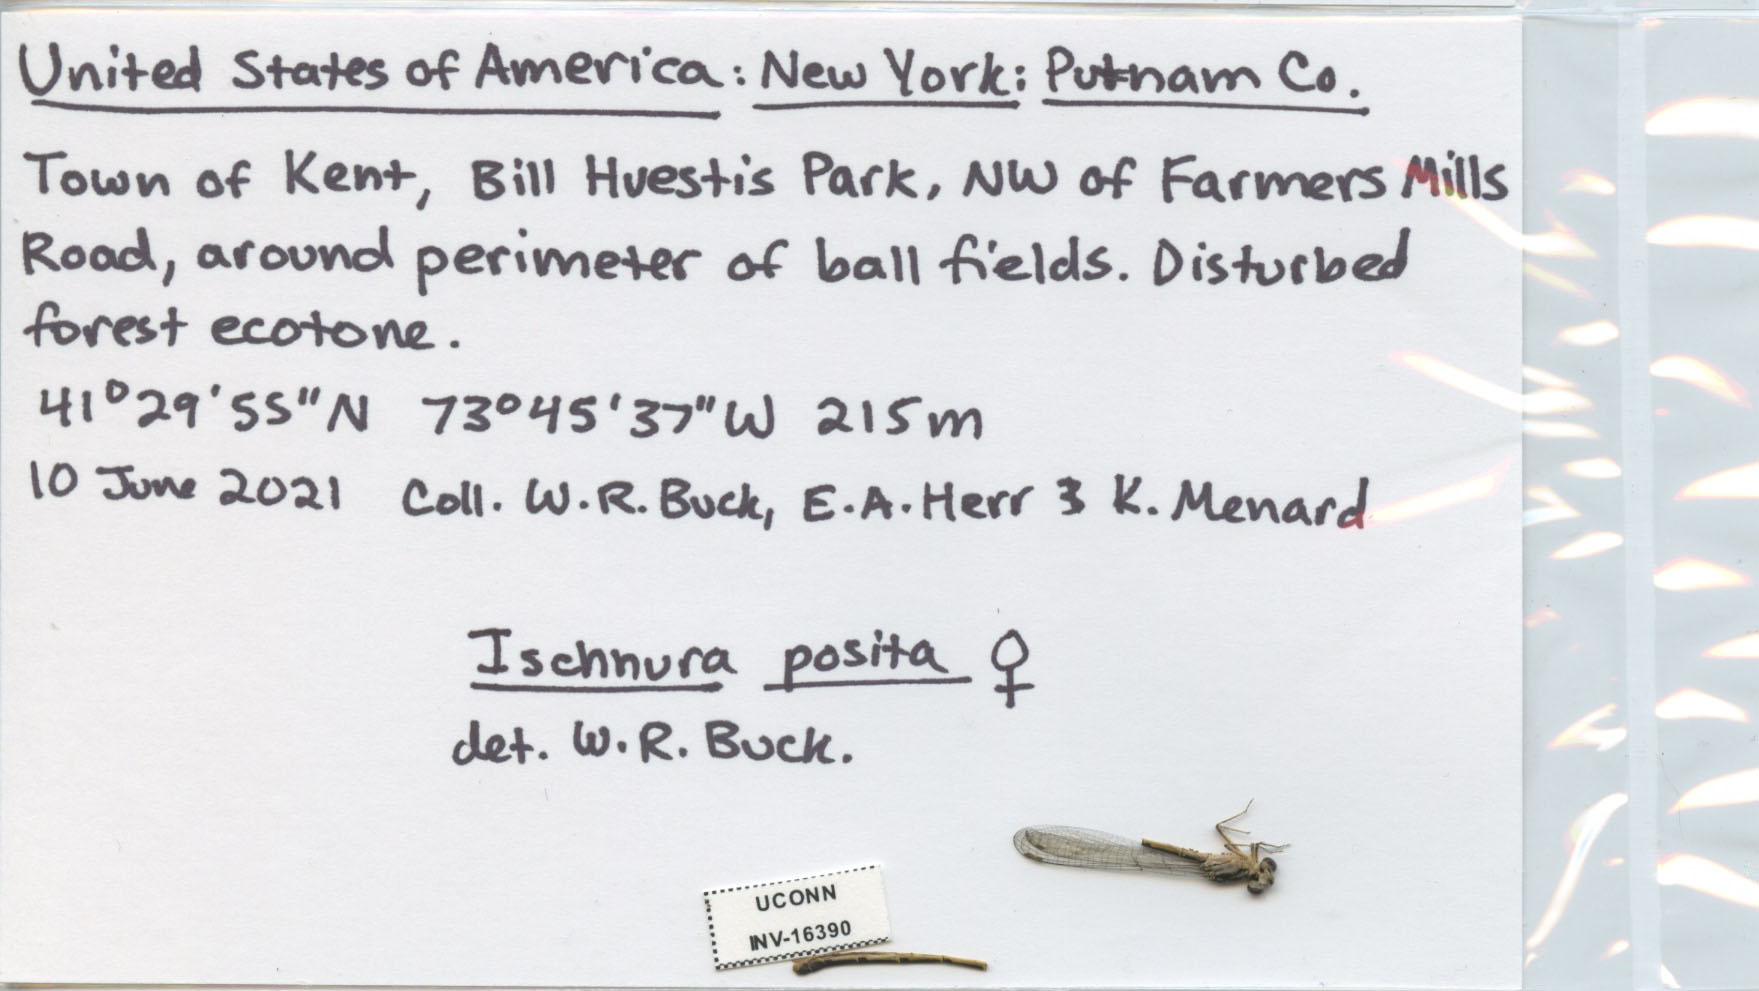 United States of America: New York: Putnam Co.
Town of Kent, Bill Huestis Park, NW of Farmers Mills
Road, around perimeter of ball fields. Disturbed
forest ecotone.
41°29'55"N 73°45'37"W 215m
10 June 2021 Coll. W.R. Buck, E.A. Herr & K. Menard
Ischnura posita ♀
det. W.R. Buck.
UCONN
INV-16390